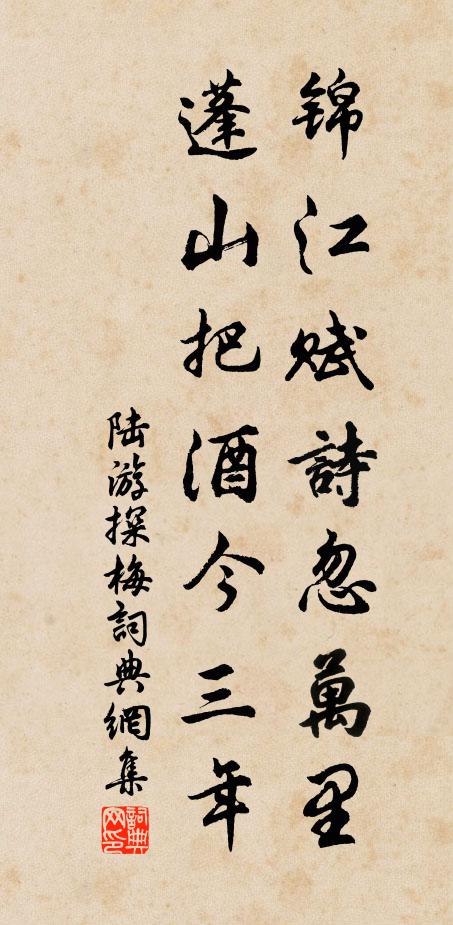 锦江赋詩忽萬里
蓬山把酒今三年
陆游探梅詞典網集
詞典网印